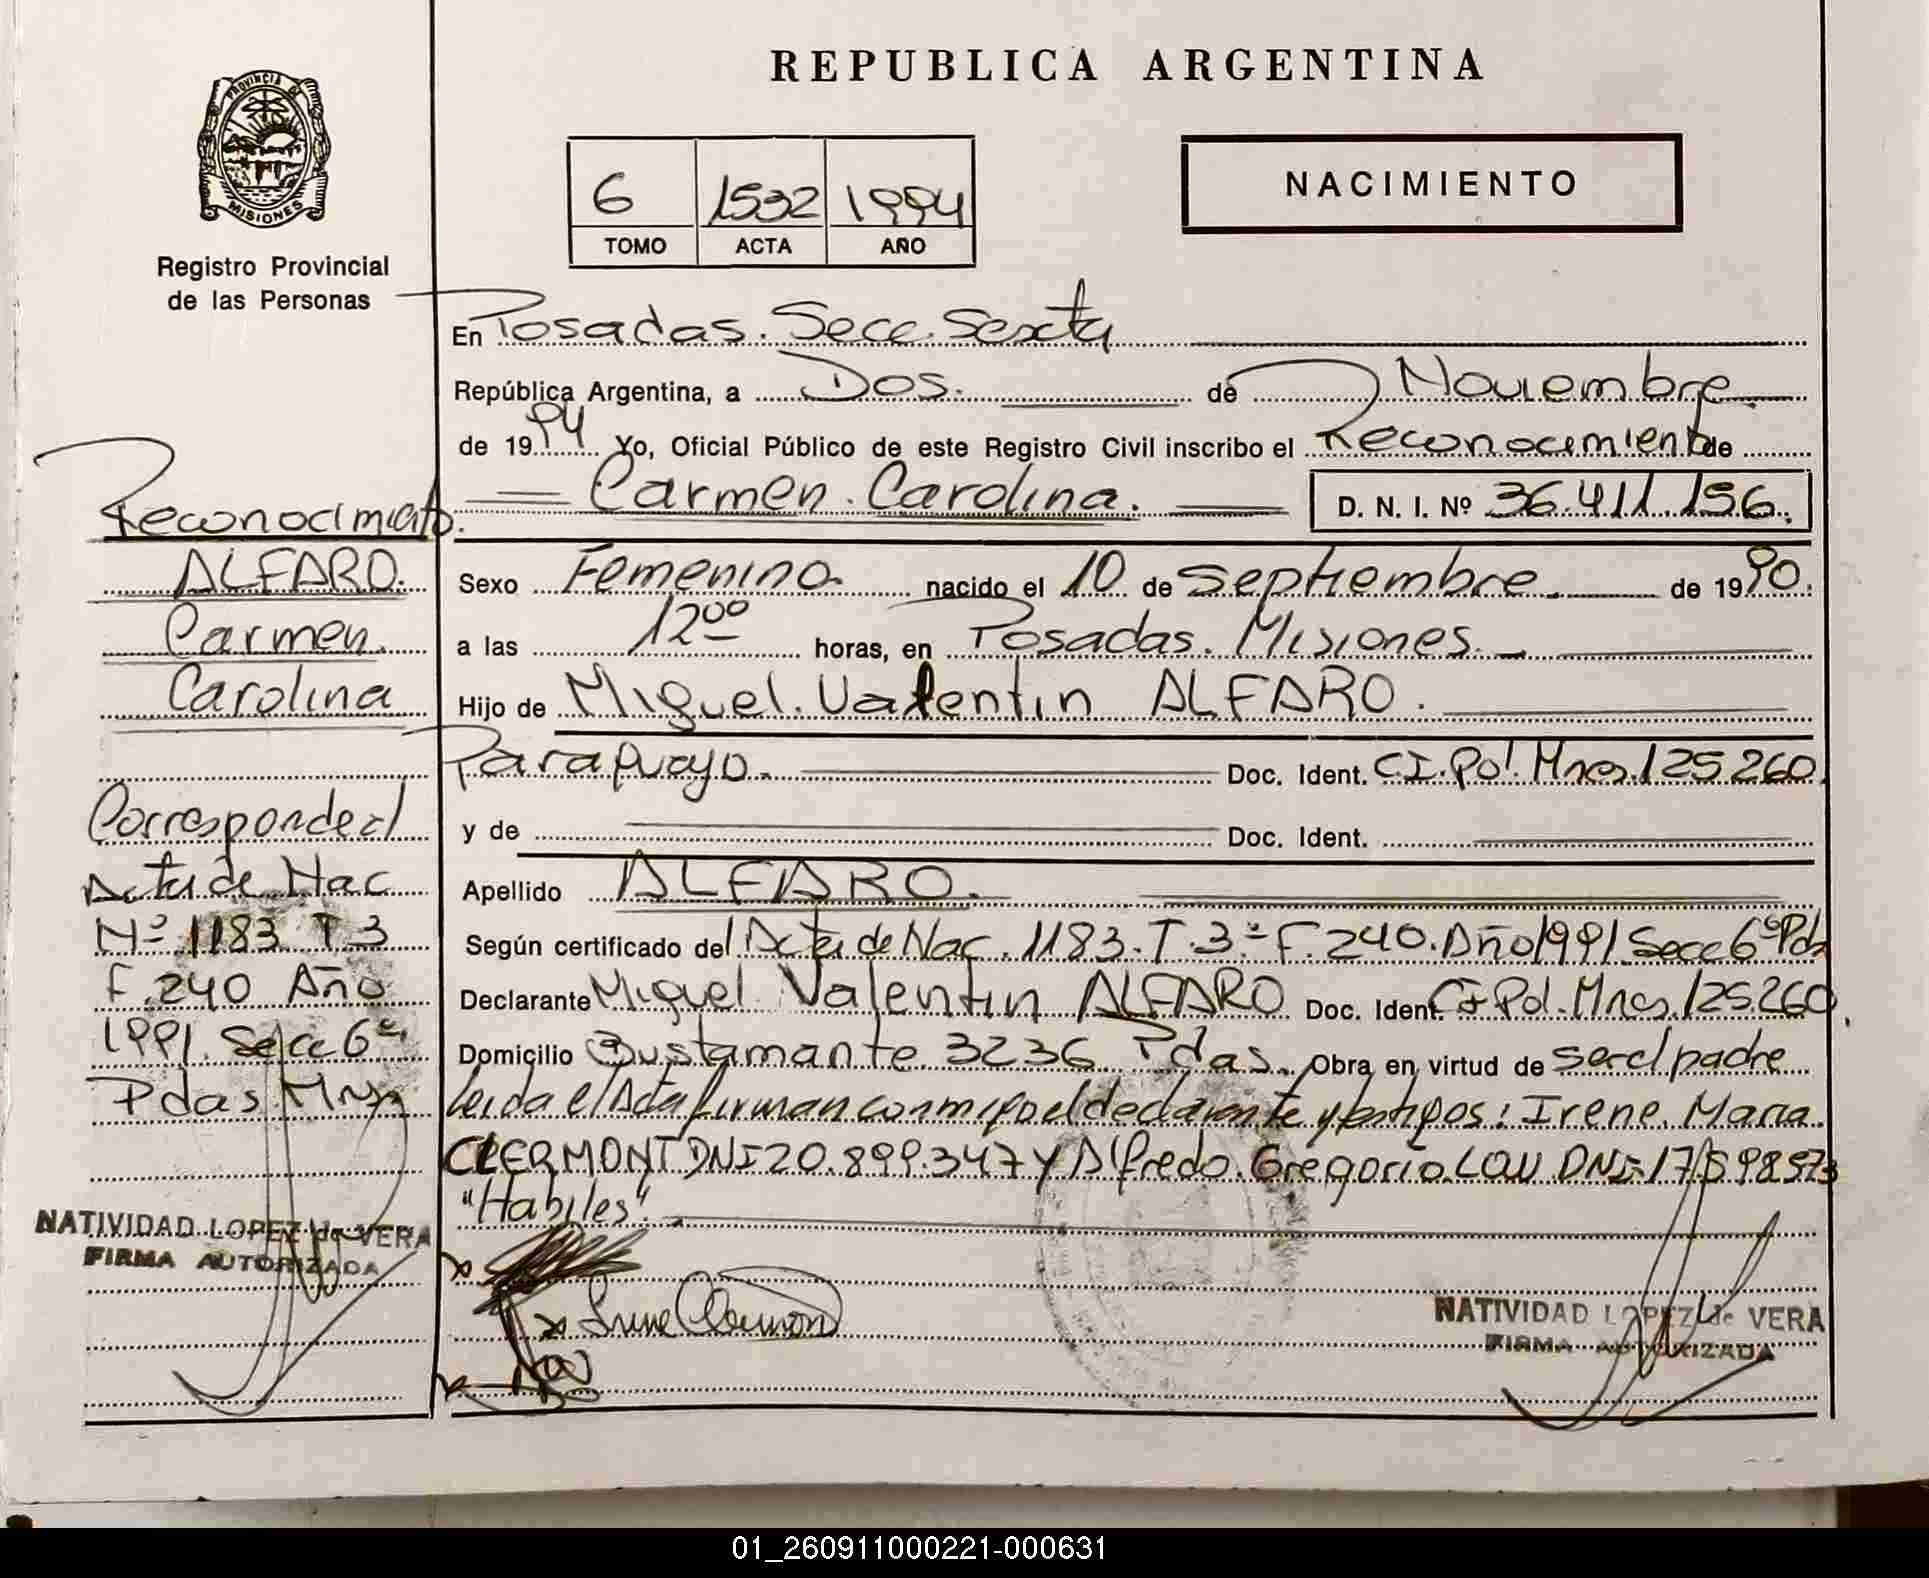 REPUBLICA ARGENTINA
PROVINCIA DE
MISIONES
Registro Provincial
de las Personas
6 1532 1994
TOMO ACTA AÑO
NACIMIENTO
En Posadas. Secc. Sexta
República Argentina, a Dos. de Noviembre
de 1994 Yo, Oficial Público de este Registro Civil inscribo el Reconocimiento de
Carmen. Carolina. D. N. I. Nº 36.411.156.
Sexo Femenino. nacido el 10 de Septiembre de 1990.
a las 12ºº horas, en Posadas. Misiones.
Hijo de Miguel. Valentin ALFARO.
Paraguayo. Doc. Ident. CI. Pol. Mnes. 125260.
y de Doc. Ident.
Apellido ALFARO.
Según certificado del Acta de Nac. 1183. T. 3º F. 240. Año 1991. Secc 6º Pdas
Declarante Miguel Valentin ALFARO Doc. Ident. CI Pol. Mnes. 125.260.
Domicilio Bustamante 3236 Pdas. Obra en virtud de ser el padre
Leida el Acta firman conmigo el declarante y testigos: Irene. Maria.
CLERMONT DNI 20.899.347 y Alfredo. Gregorio. LOW DNI 17.598.573
"Habiles".
x
x Irene Clermont
x
NATIVIDAD LOPEZ de VERA
FIRMA AUTORIZADA
Reconocimiento.
ALFARO.
Carmen.
Carolina
Corresponde al
Acta de Nac
Nº 1183 T 3
F. 240 Año
1991. Secc 6ª
Pdas Mnes
NATIVIDAD LOPEZ de VERA
FIRMA AUTORIZADA
01_260911000221-000631